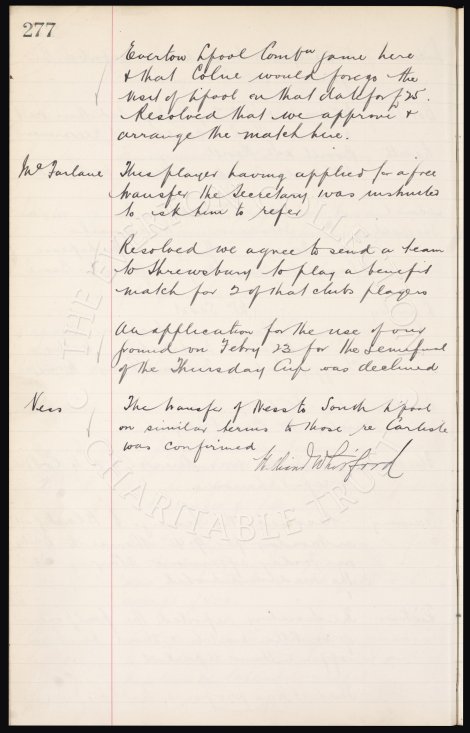 277
Everton Lpool Combn game here
& that Colne would forego the
visit of Lpool on that date for £25.
Resolved that we approve &
arrange the match here.
McFarlane This player having applied for a free
transfer the Secretary was instructed
to ask him to refer
Resolved we agree to send a team
to Shrewsbury to play a benefit
match for 2 of that clubs players
An application for the use of our
ground on Febry 23 for the Semifinal
of the Thursday Cup was declined
Ness The transfer of Ness to South Lpool
on similar terms to those re Carlisle
was confirmed
Whitford
© THE EVERTON COLLECTION
CHARITABLE TRUST